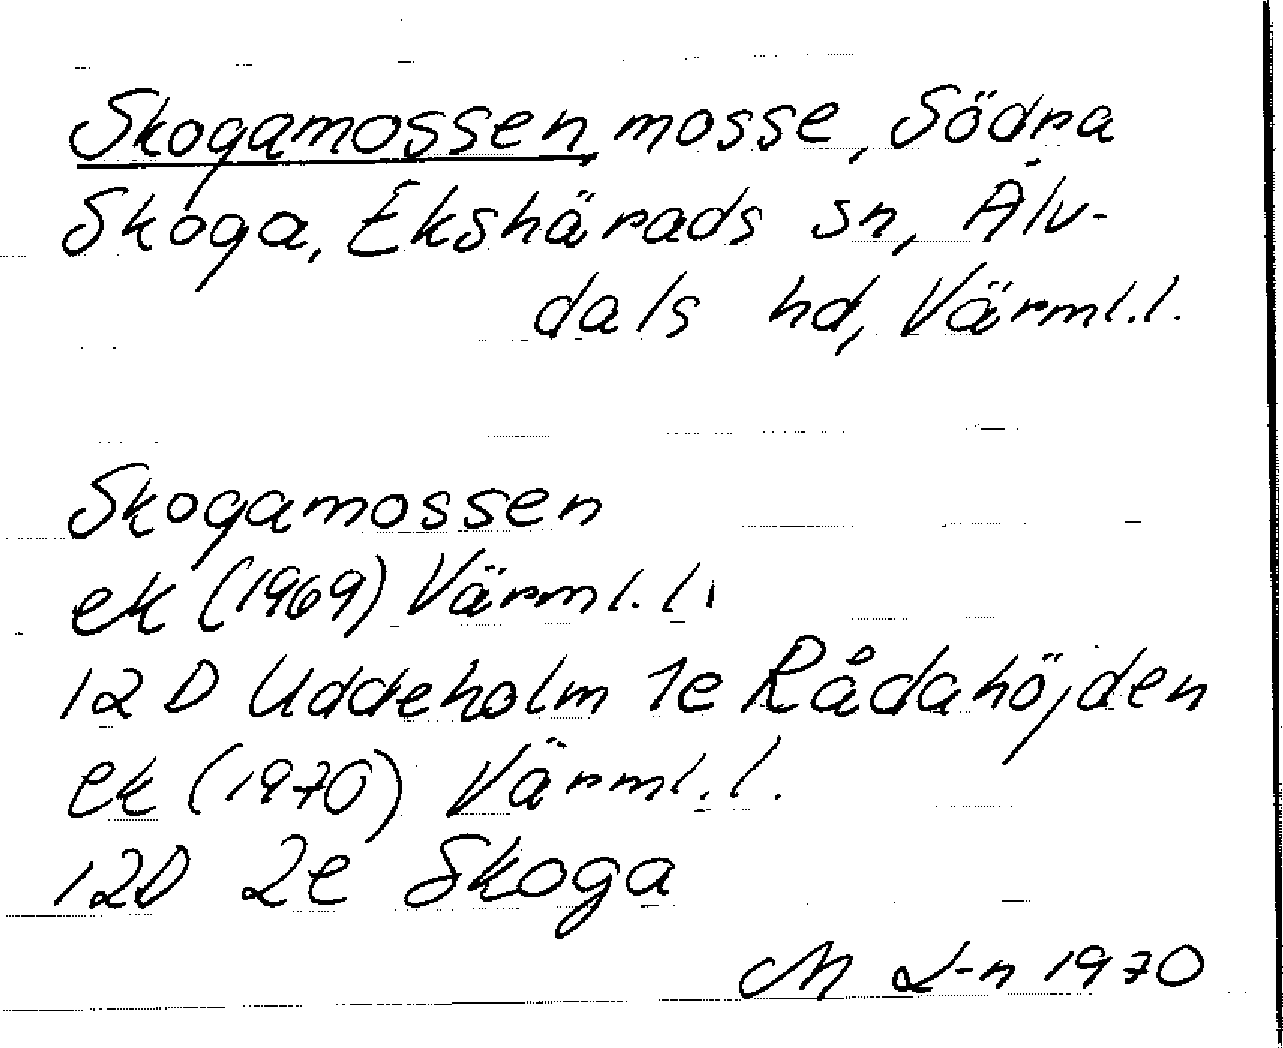 Skogamossen, mosse, Södra
Skoga, Ekshärads sn, Älv-
dals hd, Värml.l.
Skogamossen
ek (1969) Värml.l.
12 D Uddeholm 1e Rådahöjden
ek (1970) Värml.l.
12D 2e Skoga
M L-n 1970